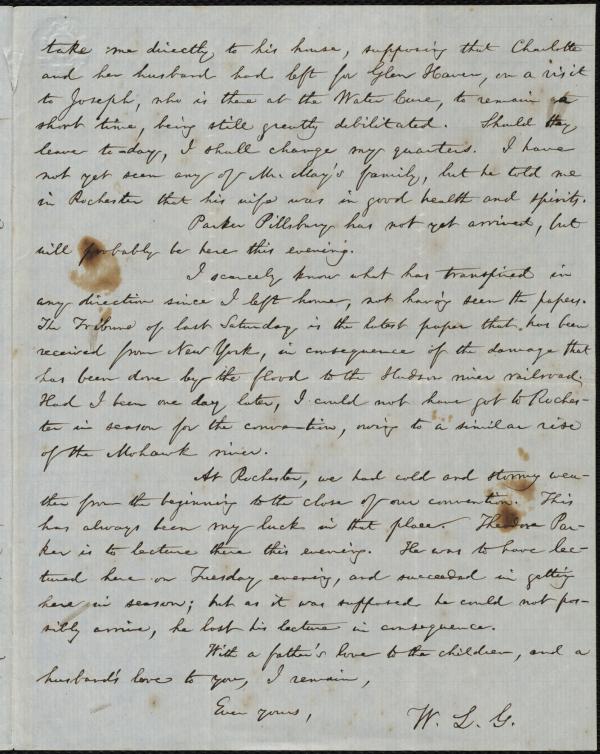 take me directly to his house, supposing that Charlotte
and her husband had left for Glen Haven, on a visit
to Joseph, who is there at the Water Cure, to remain a
short time, being still greatly debilitated. Should they
leave to-day, I shall change my quarters. I have
not yet seen any of Mr. May's family, but he told me
in Rochester that his wife was in good health and spirits.
Parker Pillsbury has not yet arrived, but
will probably be here this evening.
I scarcely know what has transpired in
any direction since I left home, not having seen the papers.
The Tribune of last Saturday is the latest paper that has been
received from New York, in consequence of the damage that
has been done by the flood to the Hudson river railroad.
Had I been one day later, I could not have got to Roches-
ter in season for the convention, owing to a similar rise
of the Mohawk river.
At Rochester, we had cold and stormy wea-
ther from the beginning to the close of our convention. This
has always been my luck in that place. Theodore Par-
ker is to lecture there this evening. He was to have lec-
tured here on Tuesday evening, and succeeded in getting
here in season; but as it was supposed he could not pos-
sibly arrive, he lost his lecture in consequence.
With a father's love to the children, and a
husband's love to you, I remain,
Ever yours,
W. L. G.